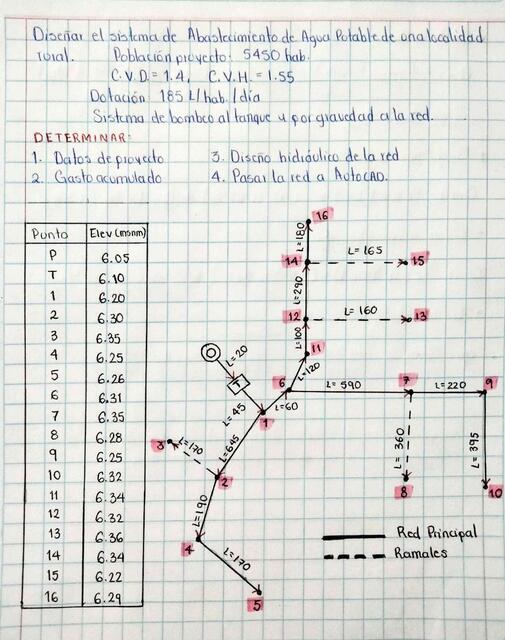 Diseñar el sistema de Abastecimiento de Agua Potable de una localidad
rural. Población proyecto: 5450 hab.
C.V.D. = 1.4, C.V.H. = 1.55
Dotación: 185 L/hab./día
Sistema de bombeo al tanque y por gravedad a la red.
DETERMINAR:
1. Datos de proyecto
2. Gasto acumulado
3. Diseño hidráulico de la red
4. Pasar la red a AutoCAD.
Punto Elev (msnm)
P 6.05
T 6.10
1 6.20
2 6.30
3 6.35
4 6.25
5 6.26
6 6.31
7 6.35
8 6.28
9 6.25
10 6.32
11 6.34
12 6.32
13 6.36
14 6.34
15 6.22
16 6.29
16
L=180
14
L= 165
15
L=290
12
L= 160
13
L=100
11
L=120
L=20
T
6
L= 590
7
L= 220
9
L=45
L=60
1
3
L=170
L=645
2
L= 360
8
L= 395
10
L=190
4
L=170
5
Red Principal
Ramales